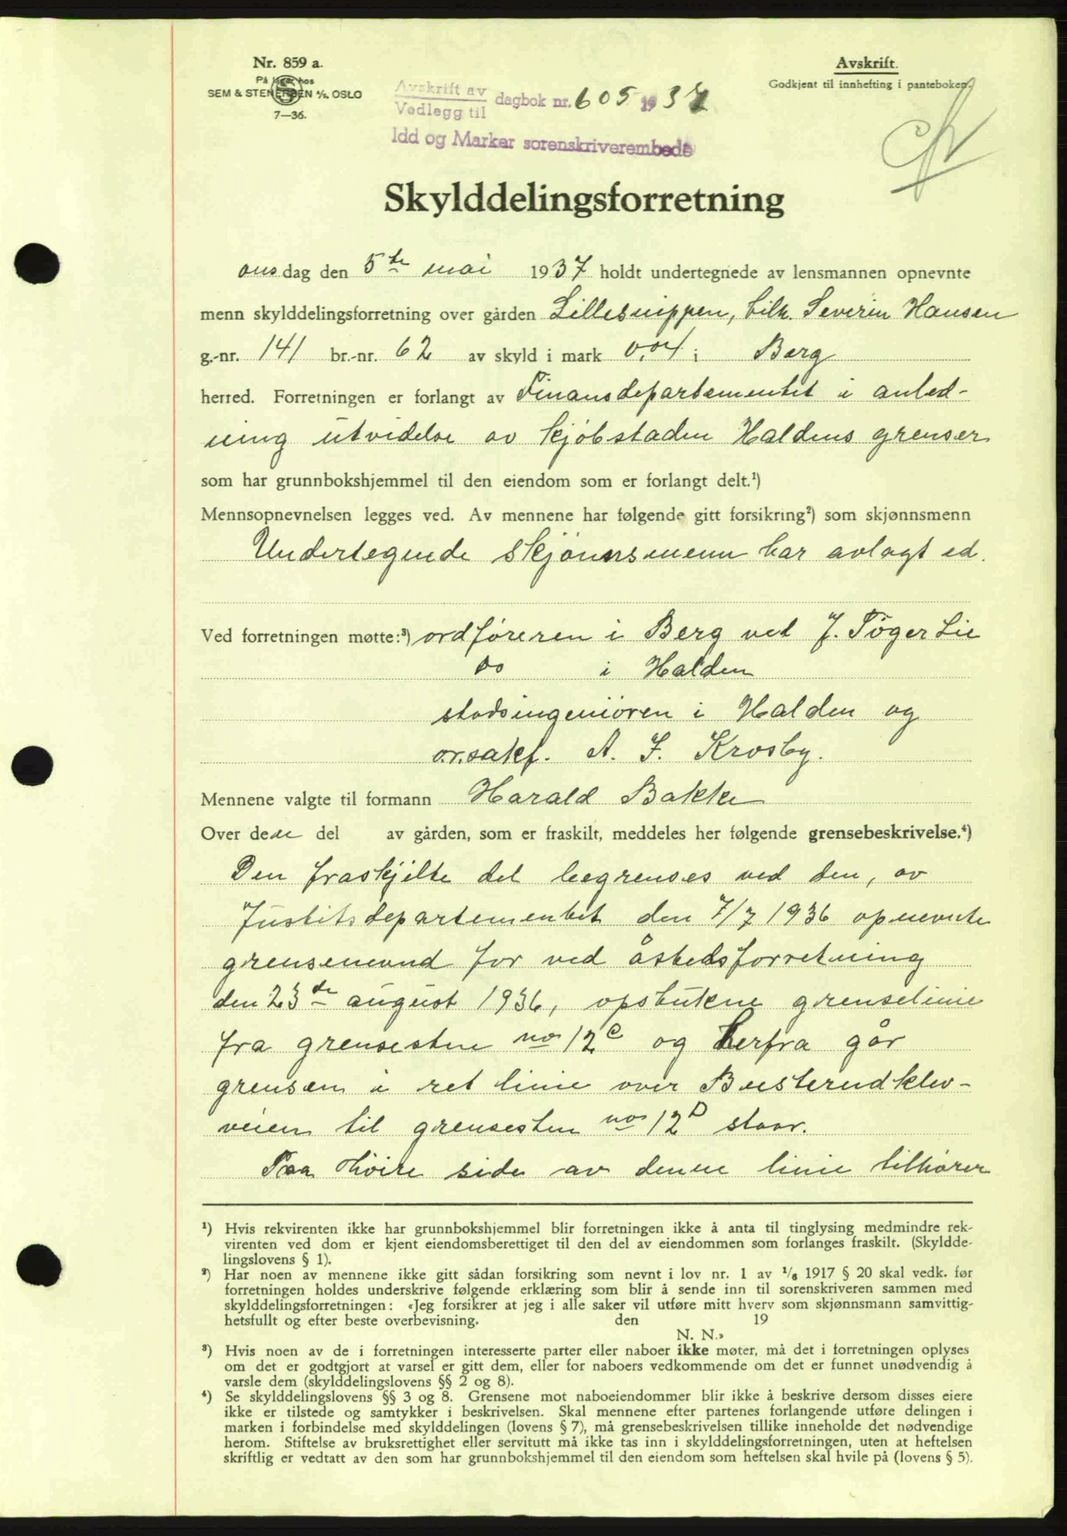 Nr. 859 a.
På lager hos
SEM & STENERSEN A/S, OSLO
7—36.
Avskrift.
Godkjent til innhefting i panteboken.
Avskrift av
Vedlegg til dagbok nr. 605 1937
Idd og Marker sorenskriverembede
Skylddelingsforretning
onsdag den 5te mai 1937 holdt undertegnede av lensmannen opnevnte
menn skylddelingsforretning over gården Lillesnippen, tilh. Severin Hansen
g.-nr. 141 br.-nr. 62 av skyld i mark 0,04 i Berg
herred. Forretningen er forlangt av Finansdepartementet i anled-
ning utvidelse av kjøbstaden Haldens grenser
som har grunnbokshjemmel til den eiendom som er forlangt delt.¹)
Mennsopnevnelsen legges ved. Av mennene har følgende gitt forsikring²) som skjønnsmenn
Undertegnede skjønnsmenn har avlagt ed.
Ved forretningen møtte:³) ordføreren i Berg ved J. Töger Lie
do i Halden
stadsingeniören i Halden og
o.r.sakf. A. F. Krosby.
Mennene valgte til formann Harald Bakke
Over denne del av gården, som er fraskilt, meddeles her følgende grensebeskrivelse.⁴)
Den fraskjilte del begrenses ved den, av
Justitsdepartementet den 7/7 1936 opnevnte
grensenevnd for ved åstedsforretning
den 23de august 1936, opstukne grenselinie
fra grensesten no 12C og herfra går
grensen i ret linie over Busterudklev-
veien til grensesten no 12D staar.
Paa høire side av denne linie tilhører
¹) Hvis rekvirenten ikke har grunnbokshjemmel blir forretningen ikke å anta til tinglysing medmindre rek-
virenten ved dom er kjent eiendomsberettiget til den del av eiendommen som forlanges fraskilt. (Skyldde-
lingslovens § 1).
²) Har noen av mennene ikke gitt sådan forsikring som nevnt i lov nr. 1 av ¹/₆ 1917 § 20 skal vedk. før
forretningen holdes underskrive følgende erklæring som blir å sende inn til sorenskriveren sammen med
skylddelingsforretningen: «Jeg forsikrer at jeg i alle saker vil utføre mitt hverv som skjønnsmann samvittig-
hetsfullt og efter beste overbevisning. den 19
N. N.»
³) Hvis noen av de i forretningen interesserte parter eller naboer ikke møter, må det i forretningen oplyses
om det er godtgjort at varsel er gitt dem, eller for naboers vedkommende om det er funnet unødvendig å
varsle dem (skylddelingslovens §§ 2 og 8).
⁴) Se skylddelingslovens §§ 3 og 8. Grensene mot naboeiendommer blir ikke å beskrive dersom disses eiere
ikke er tilstede og samtykker i beskrivelsen. Skal mennene efter partenes forlangende utføre delingen i
marken i forbindelse med skylddelingen (lovens § 7), må grensebeskrivelsen tillike inneholde det nødvendige
herom. Stiftelse av bruksrettighet eller servitutt må ikke tas inn i skylddelingsforretningen, uten at heftelsen
skriftlig er vedtatt av den som har grunnbokshjemmel til den eiendom som heftelsen skal hvile på (lovens § 5).